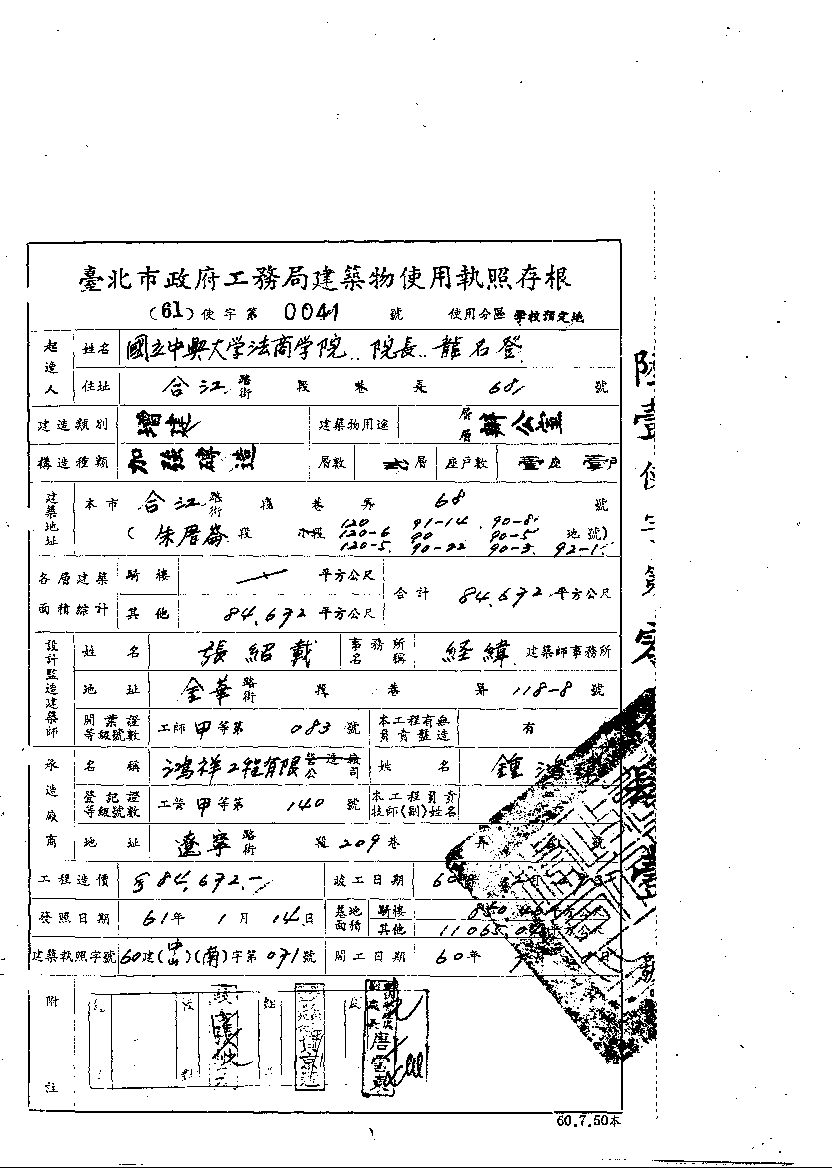 臺北市政府工務局建築物使用執照存根
(61)使字第 0041 號 使用分區 學校預定地
起造人 姓名 國立中興大学法商学院..院長..龍名登
住址 合江 路街 段 巷 弄 68 號
建造類別 增建 建築物用途 層層 辦公室
構造種類 加強磚造 層數 層 座戶數 壹座 壹戶
建築地址 本市 合江 路街 段 巷 弄 68 號
(朱厝崙 段 小段 120 91-14 90-8 地號)
120-6 90 90-5
120-5 90-22 90-3 92-1
各層建築面積綜計 騎樓 平方公尺 合計 84.672 平方公尺
其他 84.672 平方公尺
設計監造建築師 姓名 張紹戴 事務所名稱 経緯 建築師事務所
地址 金華 路街 段 巷 弄 118-8 號
開業證等級號數 工師甲等第 083 號 本工程有無負責監造 有
承造廠商 名稱 鴻祥工程有限 營造廠公司 姓名 鍾鴻
登記證等級號數 工營甲等第 140 號 本工程負責技師(副)姓名
地址 遼寧 路街 段 209 巷 弄 號
工程造價 84,672.- 竣工日期 60
發照日期 61年 1月 14日 基地面積 騎樓 平方公尺
其他 11065. 平方公尺
建築執照字號 60建(中山)(南)字第071號 開工日期 60年 月
附註
60.7.50本
陸壹使字第零